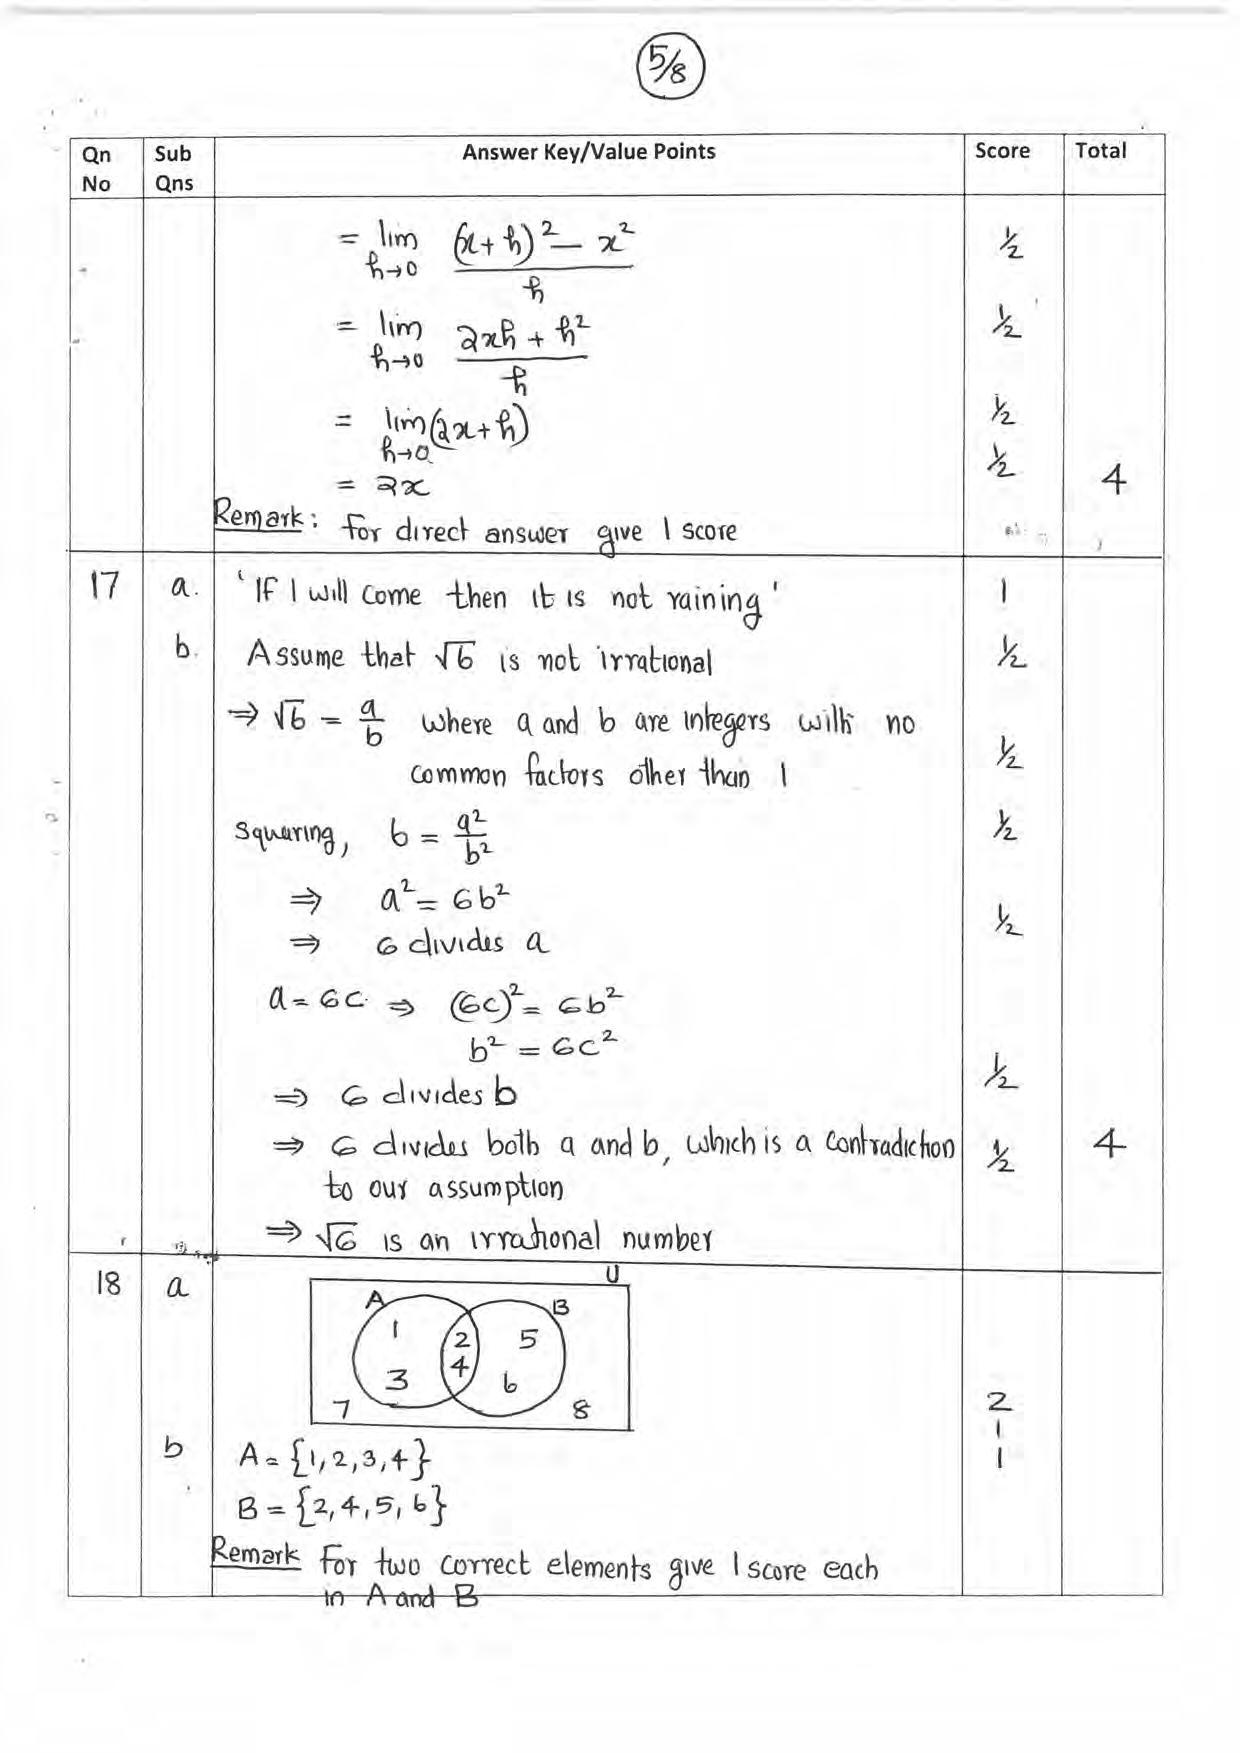 5/8
Qn No Sub Qns Answer Key/Value Points Score Total
= lim h→0 ((x+h)² − x²)/h ½
= lim h→0 (2xh + h²)/h ½
= lim h→0 (2x+h) ½
= 2x ½ 4
Remark: For direct answer give 1 score
17 a. 'If I will come then it is not raining' 1
b. Assume that √6 is not irrational ½
⇒ √6 = a/b where a and b are integers with no
common factors other than 1 ½
Squaring, 6 = a²/b² ½
⇒ a² = 6b²
⇒ 6 divides a ½
a = 6c ⇒ (6c)² = 6b²
b² = 6c²
⇒ 6 divides b ½
⇒ 6 divides both a and b, which is a contradiction ½ 4
to our assumption
⇒ √6 is an irrational number
18 a U
A B
1 2 5
3 4 6
7 8 2
1
b A = {1,2,3,4} 1
B = {2,4,5,6}
Remark For two correct elements give 1 score each
in A and B